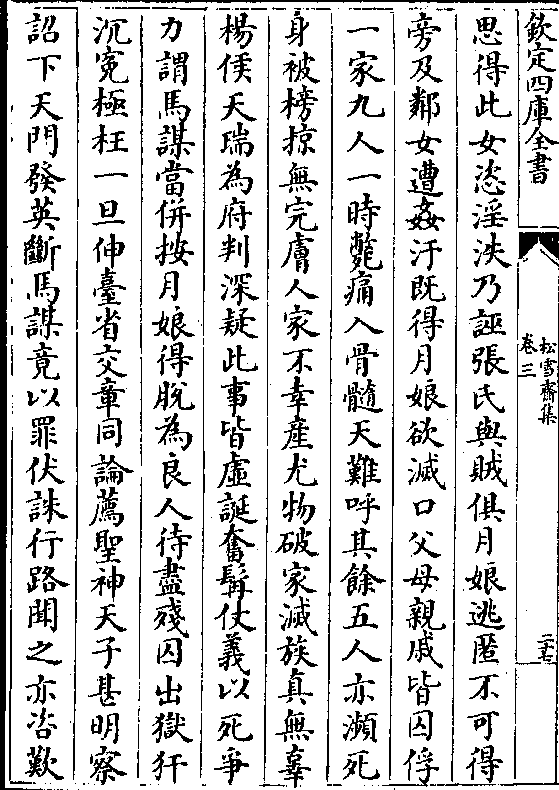 欽定四庫全書
松雪齋集
卷三
二十七
思得此女恣淫泆乃誣張氏與賊俱月娘逃匿不可得
旁及鄰女遭姦汙既得月娘欲滅口父母親戚皆囚俘
一家九人一時斃痛入骨髓天難呼其餘五人亦瀕死
身被榜掠無完膚人家不幸産尤物破家滅族真無辜
楊侯天瑞為府判深疑此事皆虛誕奮髯仗義以死爭
力謂馬謀當併按月娘得脫為良人待盡殘囚出獄犴
沉寃極枉一旦伸臺省交章同論薦聖神天子甚明察
詔下天門發英斷馬謀竟以罪伏誅行路聞之亦咨歎